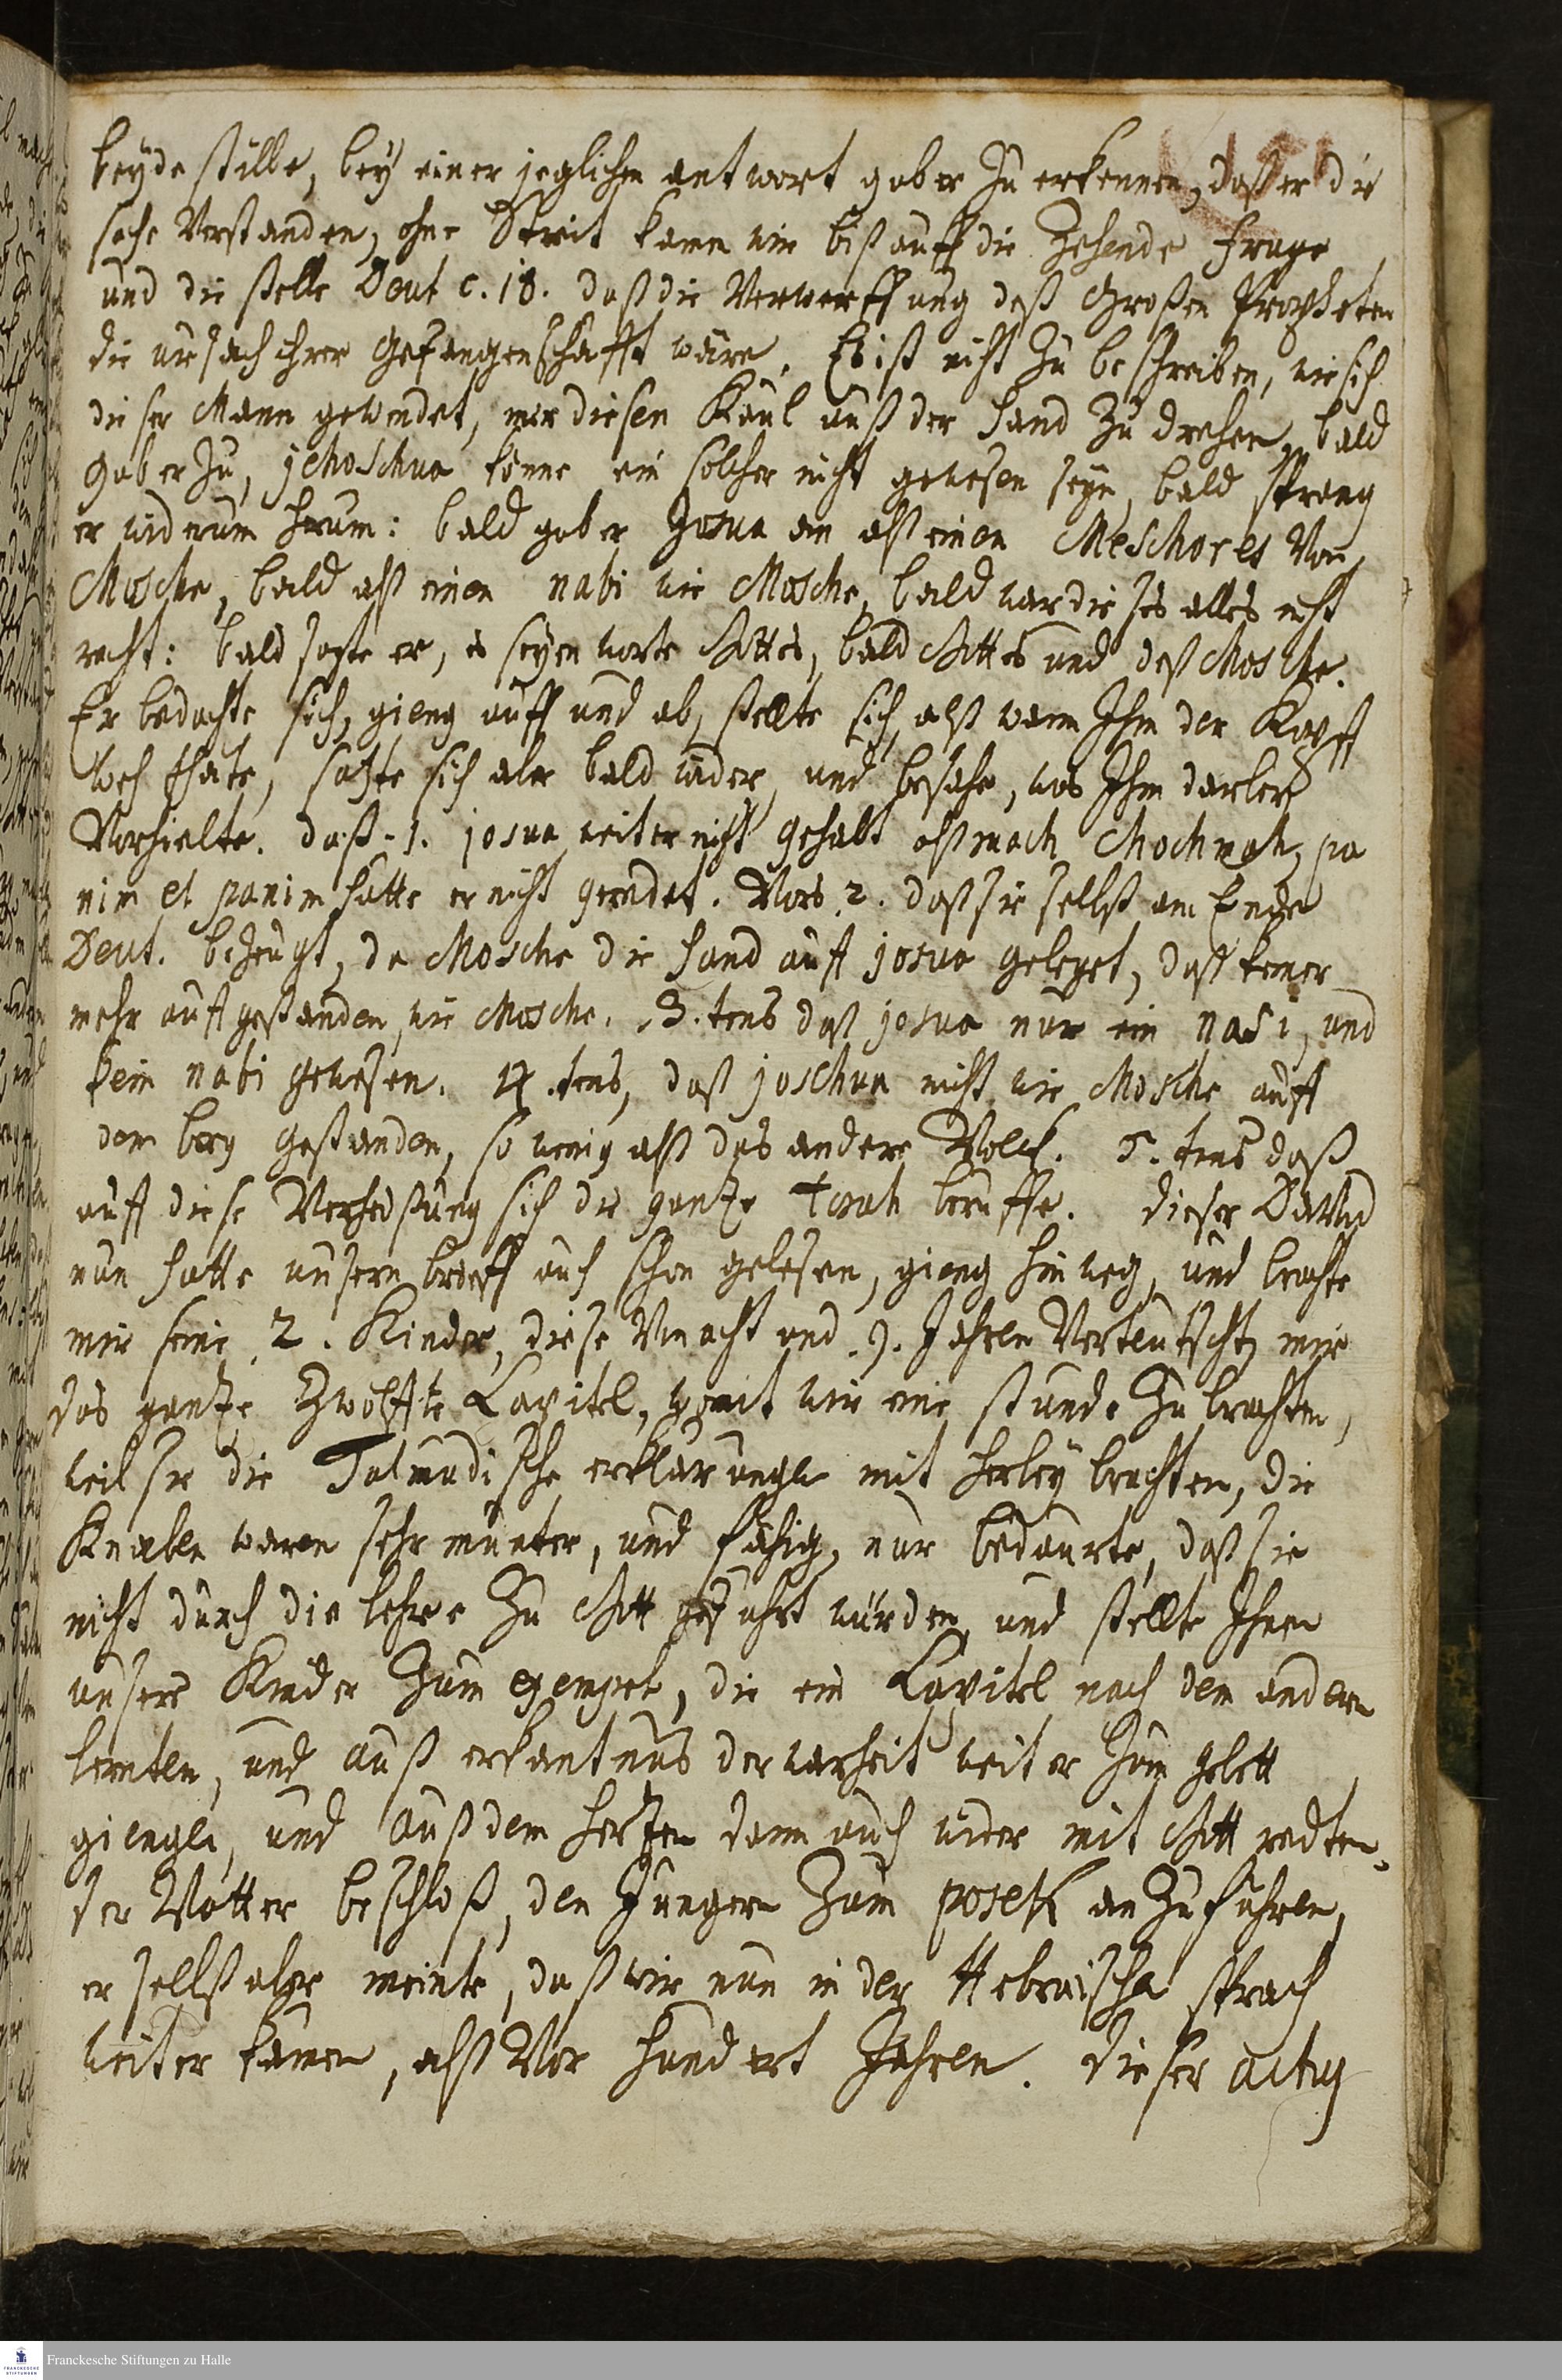 beyde stille, bey einer jeglichen antwort gab er zu erkennen, daß er die
sache Verstanden, ohne Streit kamen wir biß auff die Zehende frage
und die stelle Deut c. 18. daß die Verwerffung deß Großen Propheten
die ursach ihrer Gefangenschafft wäre. Es ist nicht zu beschreiben, wie sich
dieser Mann gewendet, mir diesen Kaul auß der Hand zu drehen, bald
gab er zu, jehoschua könne ein solcher nicht gewesen seyn, bald sprang
er widerum herum: bald gab er Josua an alß einen Meschores Von
Mosche, bald alß einen nabi wie Mosche, bald war dieses alles nicht
recht: bald sagte er, es seyen worte Gottes, bald Gottes und deß Mosche.
Er bedachte sich, gieng auff und ab, stellte sich, alß wann Ihm der Kopff
weh thäte, satzte sich aber bald wider, und besahe, was Ihm darbey
Vorhielte. daß 1. josua weiter nicht gehabt alß ruach Chochmah, pa
nim el panim hatte er nicht geredet. Vors 2. daß sie selbst am Ende
Deut. bezeugt, da Mosche die Hand auff josua geleget, daß keiner
mehr auffgestanden wie Mosche. 3. tens daß josua nur ein nasi, und
kein nabi gewesen. 4. tens, daß joschua nicht wie Mosche auff
dem berg gestanden, so wenig alß das andere Volck. 5. tens daß
auff diese Verheißung sich die gantze torah beruffe. dieser David
nun hatte unsern brieff auch schon gelesen, gieng hinweg, und brachte
mir seine 2. Kinder, diese Von acht und 9. Jahren Verteutscht mir
das gantze Zwölffte Capitel, womit wir eine stunde zu brachten,
weil sie die Talmudische erklärungen mit herbey brachten, die
Knaben waren sehr munter, und fähig, nur bedaurte, daß sie
nicht durch die lehre zu Gott geführt würden, und stellte Ihnen
unsere Kinder zum exempel, die ein Capitel nach dem andern
lernten, und auß erkantnus der warheit weiter zum gebett
giengen, und auß dem hertzen dann auch wider mit Gott redten.
der Vatter beschloß, den Jüngern zum posek anzuführen,
er selbst aber meinte, daß wir nun in der Hebraischen sprach
weiter kämen, alß Vor hundert Jahren. dieser actus
Franckesche Stiftungen zu Halle